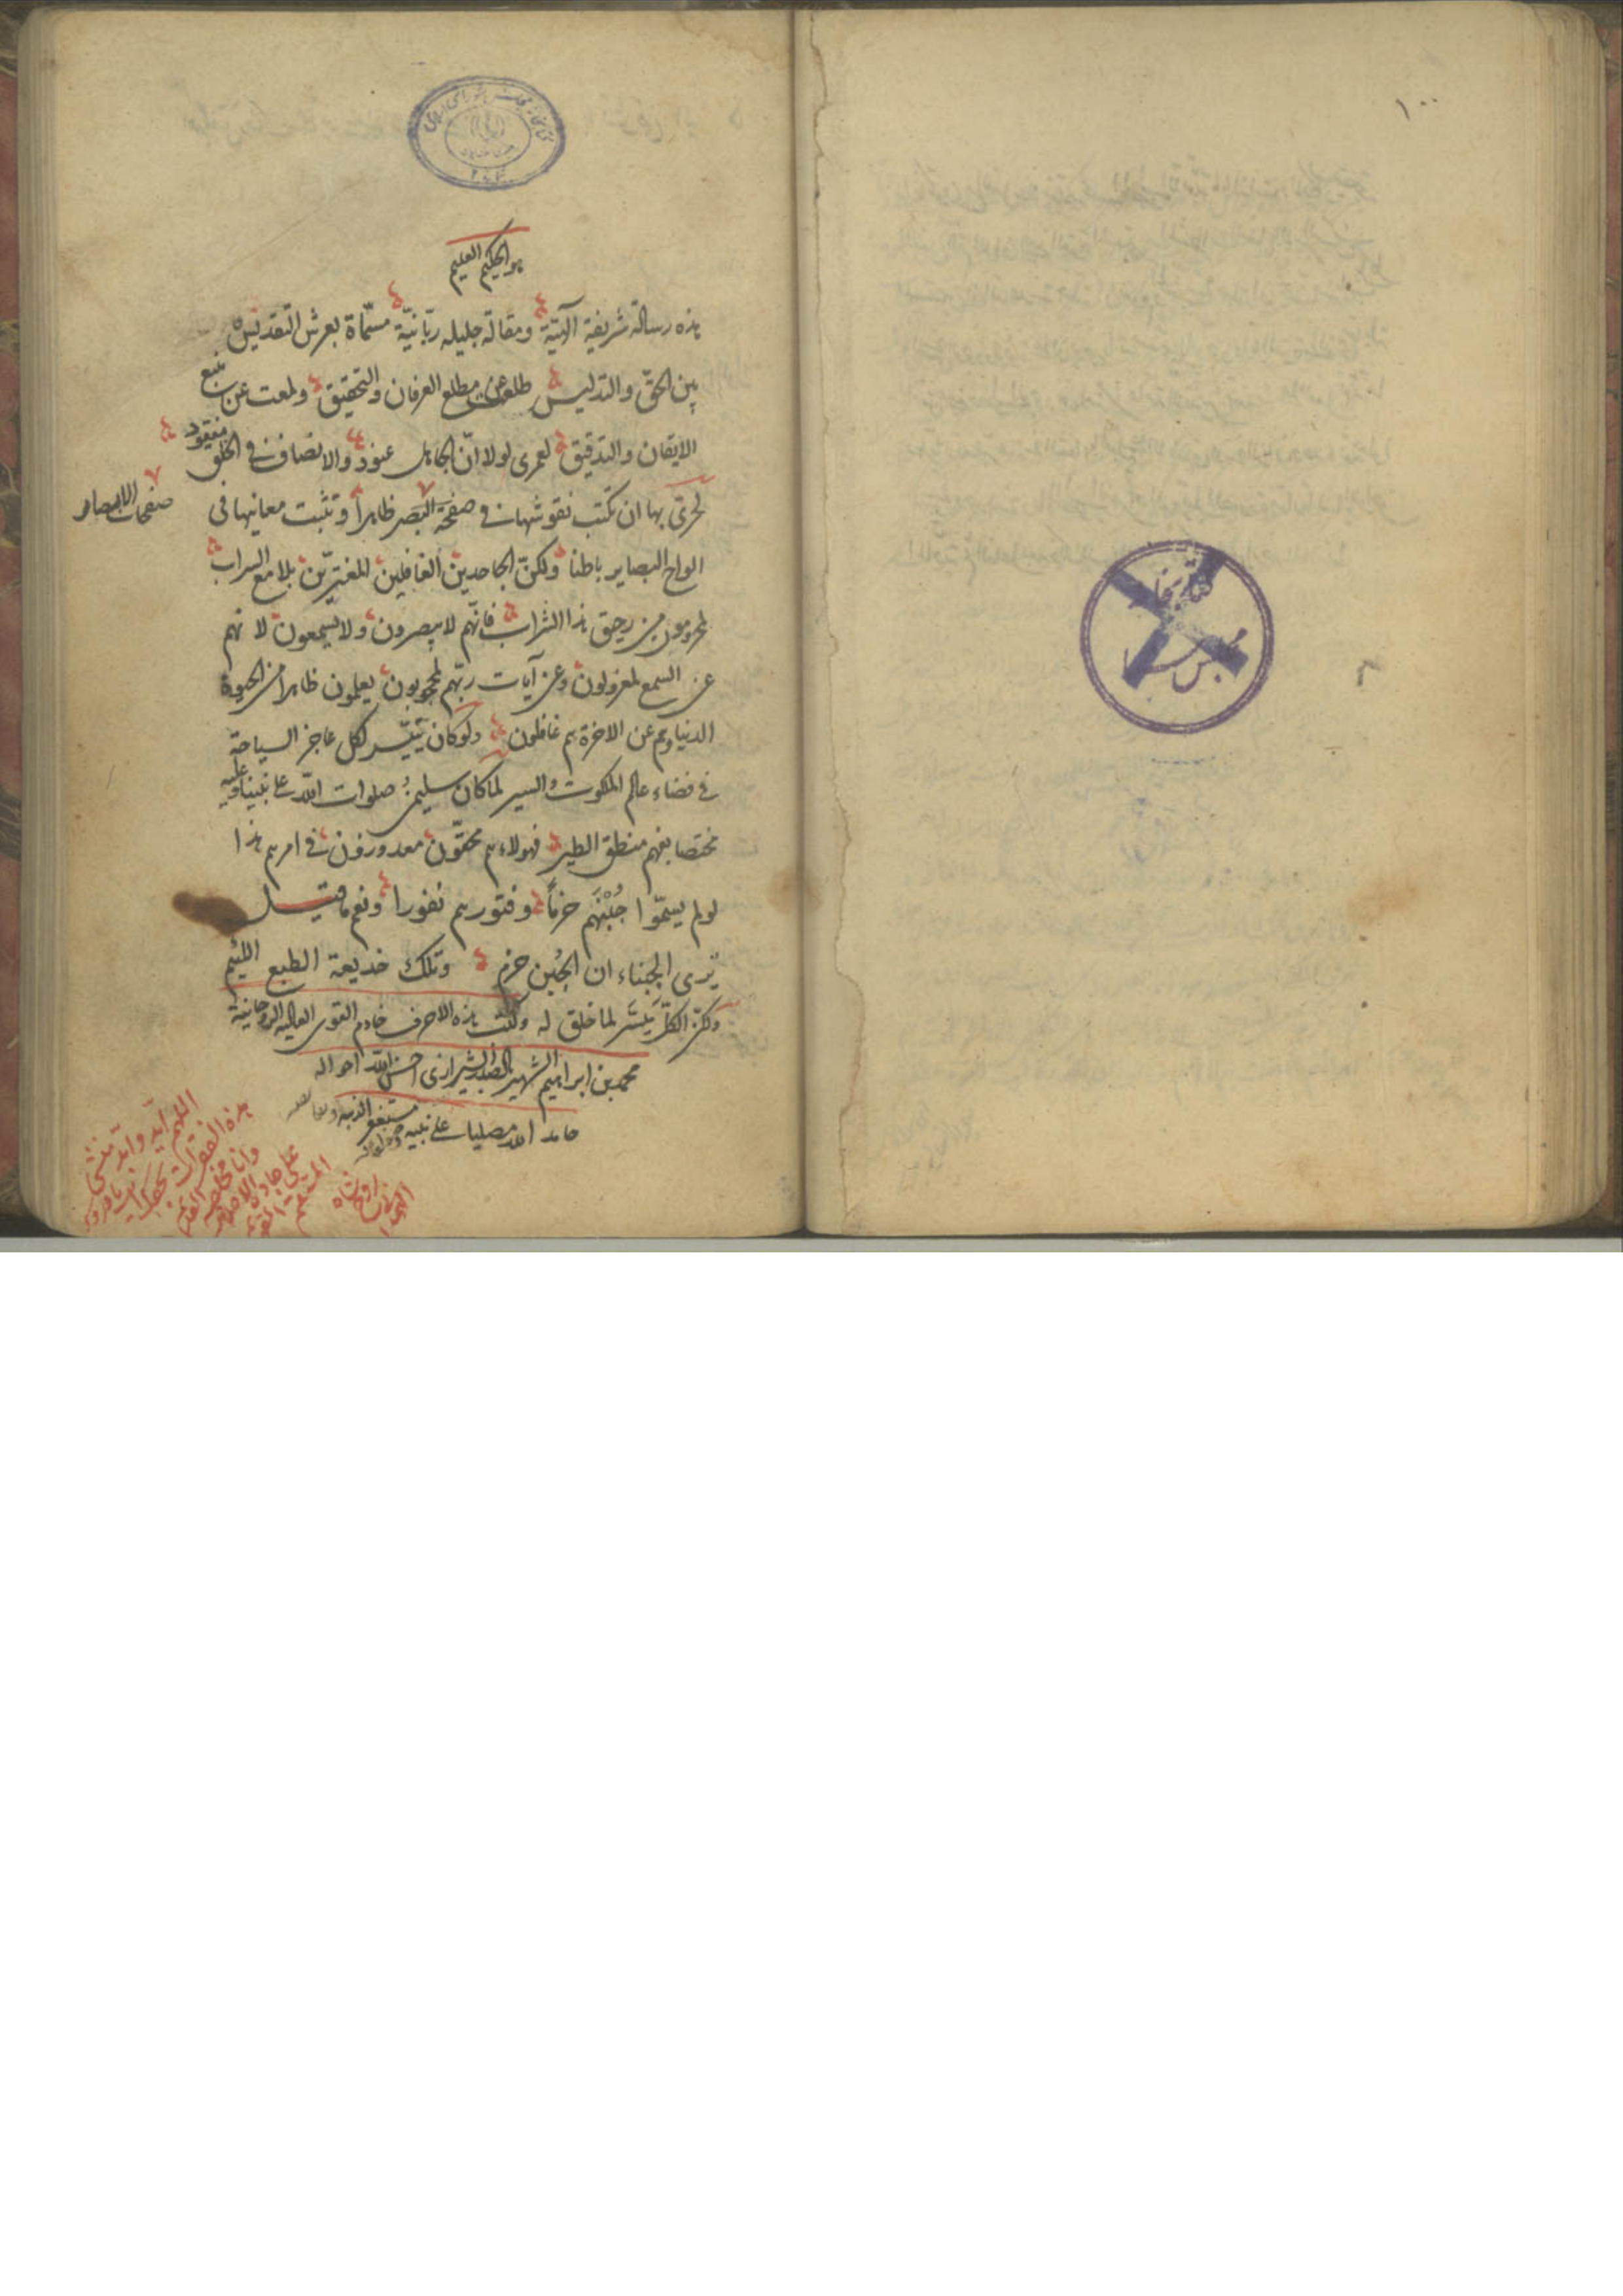 ١٠٠
هو الحكيم العليم
هذه رسالة شريفة آلهيّة ومقالة جليله ربّانيّة مسمّاة بعرش التقديس
بين الحقّ والتدليس طلعت عن مطلع العرفان والتحقيق ولمعت عن منبع
الايقان والتدقيق لعمرى لولا انّ الجاهل عنود والانصاف فى الخلق مفقود
لحرىّ بها ان تكتب نقوشها فى صفحة البصر ظاهراً وتثبت معانيها فى
صفحات الابصار
الواح البصاير باطنا ولكنّ الجاحدين الغافلين المغترّين بلامع السراب
لمحرومون من رحيق هذا الشراب فانّهم لا يبصرون ولا يسمعون لا نهم
عن السمع لمعزولون وعن آيات ربّهم لمحجوبون يعلمون ظاهرا من الحيوة
الدنيا وهم عن الاخرة هم غافلون ولو كان يتيسّر لكل عاجز السياحة
فى فضاء عالم الملكوت والسير لما كان سليمن صلوات اللّه على نبينا وعليه
مختصا بفهم منطق الطير فهولاء هم محقّون معذورون فى امرهم هذا
لو لم يسمّوا جُبْنَهم حزماً وفتورهم نفورا ونعم ما قيل
يرى الجبناء ان الجُبن حزم وتلك خديعة الطبع اللئيم
ولكنّ الكلّ ميسّر لما خلق له وكتب هذه الاحرف خادم القوى العاليه الروحانية
محمد بن ابراهيم الشهير بالصدر الشيرازى احسن اللّه احواله
حامدا للّه مصليا على نبيه مستغفرا لذنبه
اللهم
هذه الفقرات
وانا
على جادة